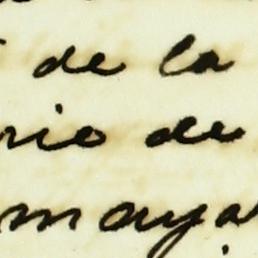 de la
rio de
maya